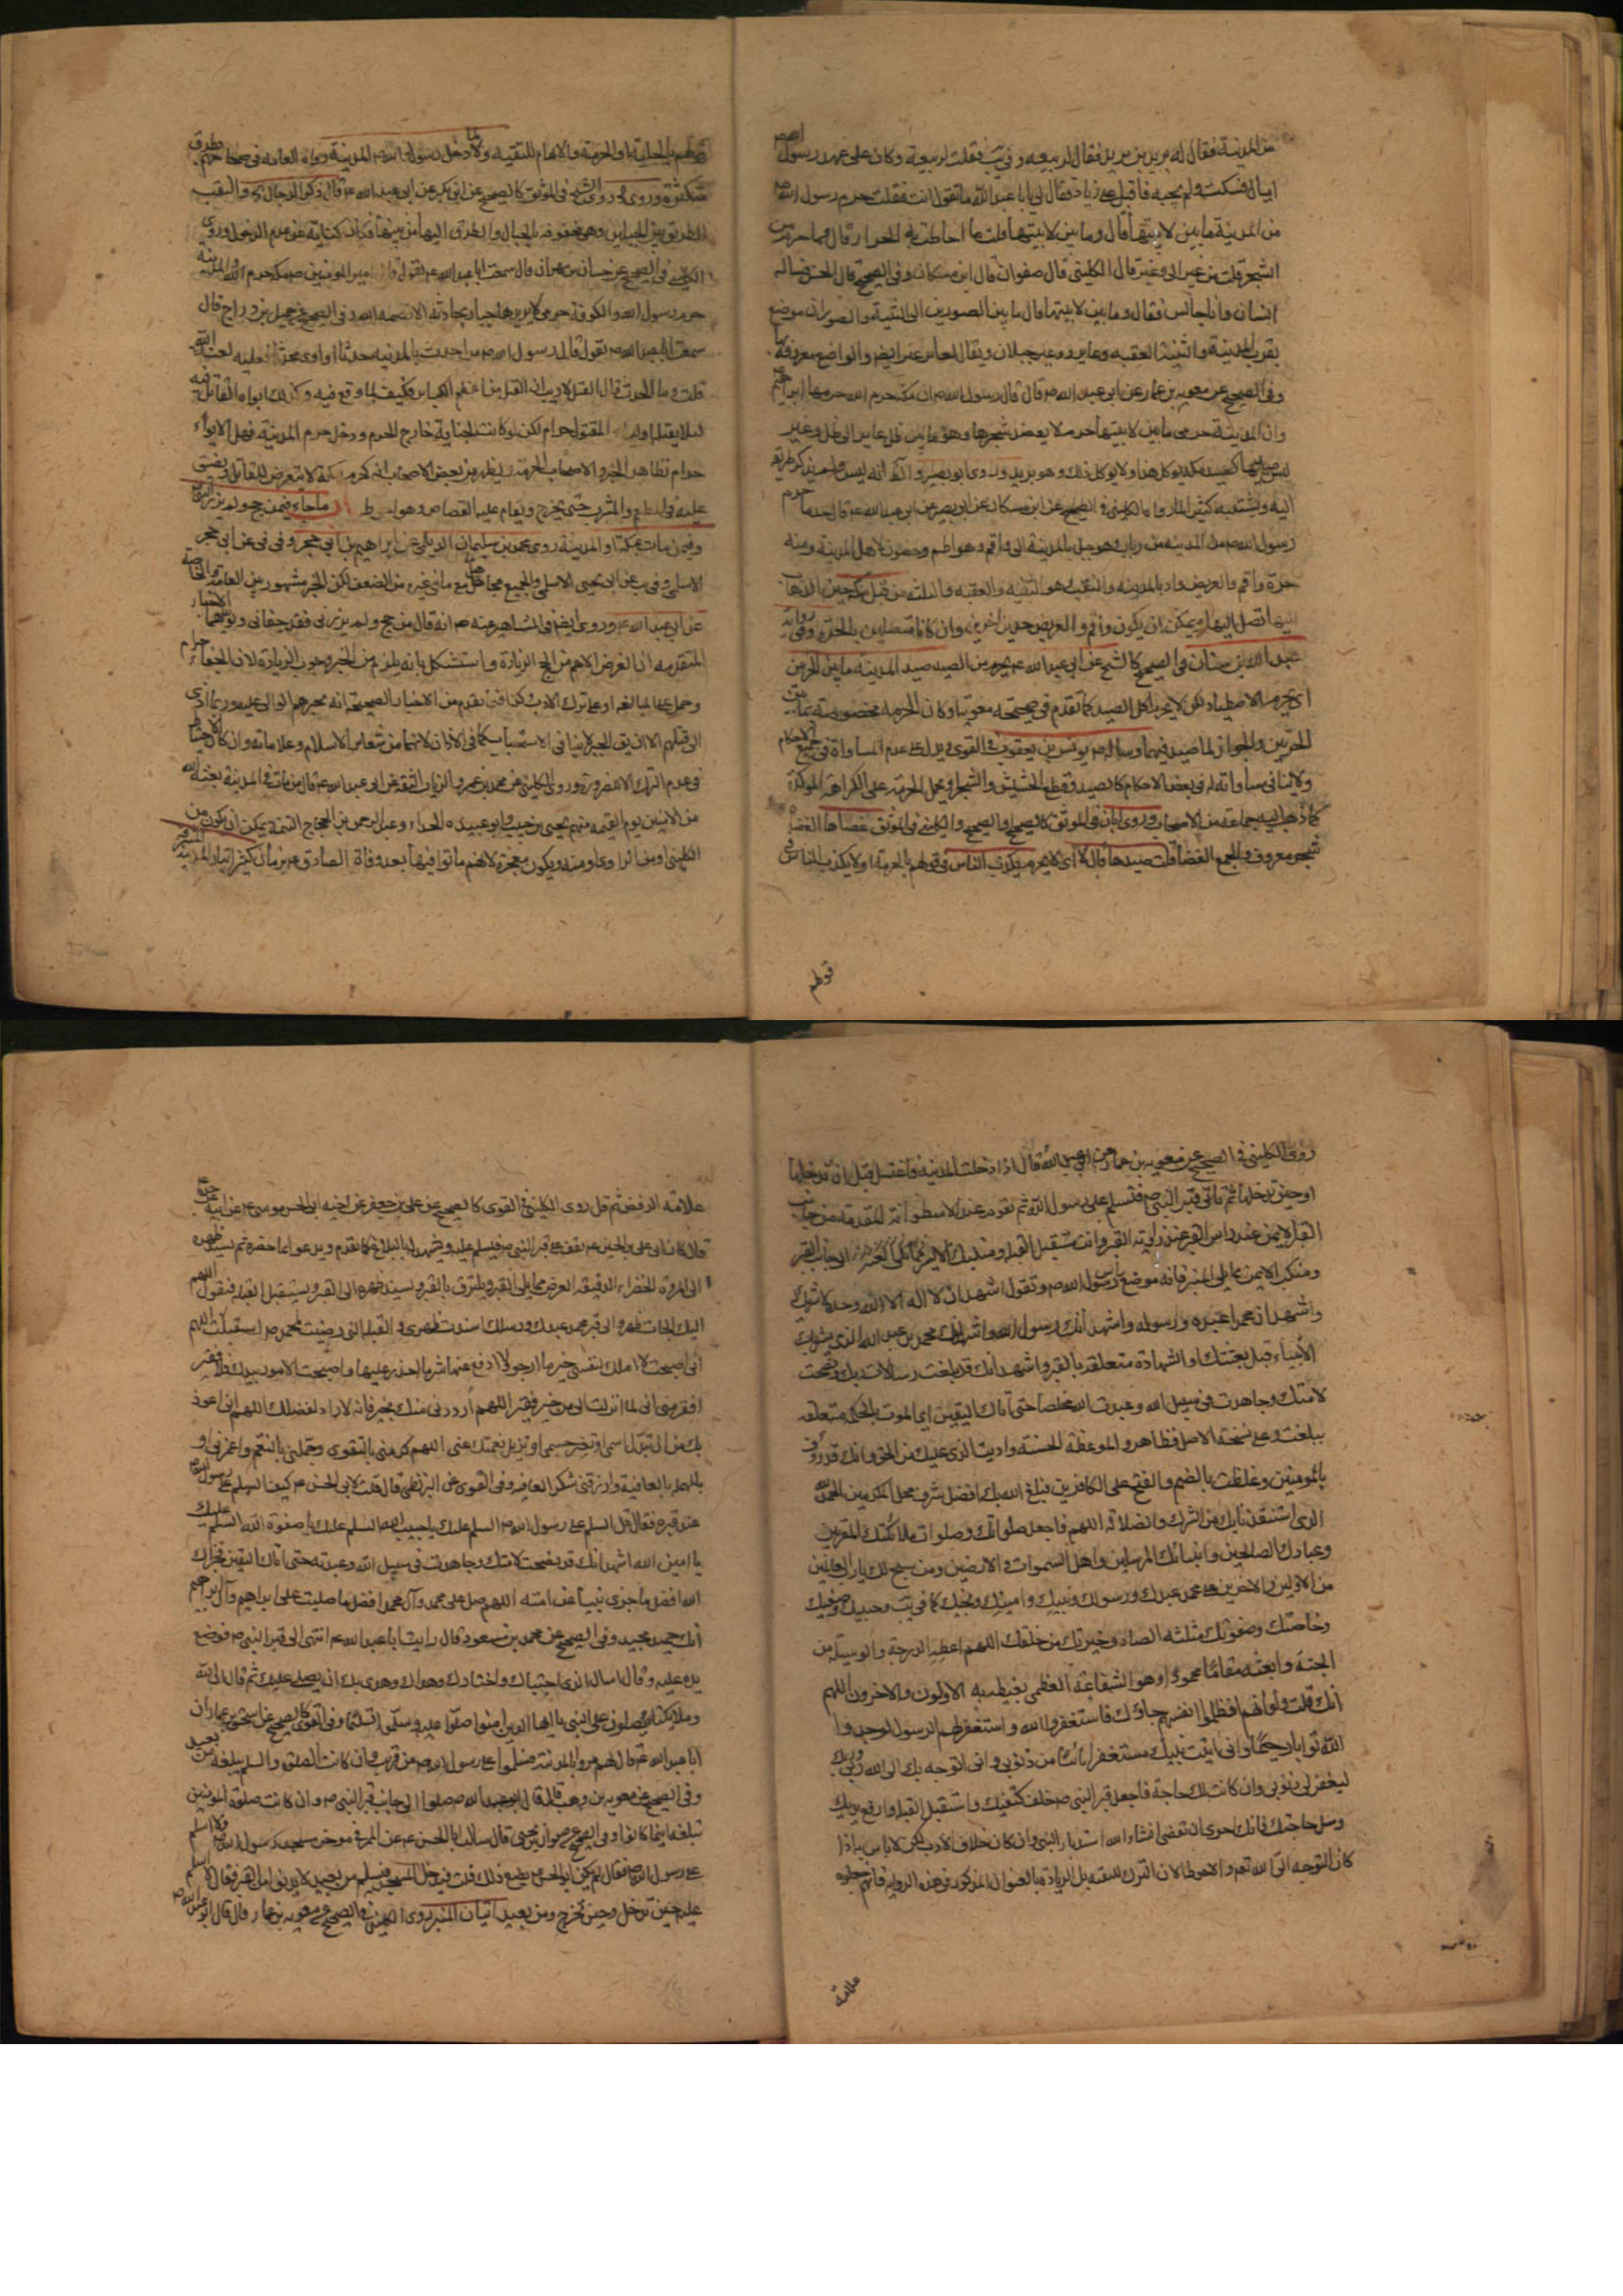 من المدينة فقال له بريد في بريد فقال لربيعه وفي يب فقلت لربيعة وكان على عهد رسول الله ص
اميال فسكت ولم يجبه فاقبل على زياد فقال لي يا با عبد الله ما تقول انت فقلت حرم رسول الله ص
من المدينة ما بين لابتيها قال وما بين لابتيها قلت ما احاطت به الحرار قال فما حرم من
الشجر قلت من عير الى وعير قال الكليني قال صفوان قال ابن مسكان وفي الصحيح قال الحسن فساله
انسان وانا جالس فقال وما بين لابتيها قال ما بين الصورين الى الثنية والصوران موضع
بقرب المدينة والثنية العقبه وعاير ووعير جبلان ويقال لعاير عير ايضا والمواضع معروفة
وفي الصحيح عن معويه بن عمار عن ابي عبد الله ع قال قال رسول الله ص ان مكة حرم الله حرمها ابراهيم
وان المدينة حرمى ما بين لابتيها حرم لا يعضد شجرها وهو ما بين ظل عاير الى ظل وعير
ليس صيدها كصيد مكة يوكل هذا ولا يوكل ذلك وهو بريد وروى ابو بصير
رسول الله ص من المدينة من رباب وهو جبل بالمدينة الى واقم وهو اطم وحصون لاهل المدينة ومنه
حرة واقم والعريض واد بالمدينة والنقب هو الثنية والعقبه من قبل مكة حين الذهاب
اليها تصل اليها ويمكن ان يكون واقم والعريض حدين اخرين وان كانا متصلين بالحرة وفي رواية
عبد الله بن سنان في الصحيح كالشيخ عن ابي عبد الله ع يحرم من الصيد صيد المدينة ما بين الحرتين
اي يحرم الاصطياد لكن لا يحرم اكل الصيد كما تقدم في صحيحة معويه وكان الحرمة مخصوصة بما بين
الحرتين والجواز لما صيد فيهما وساله يونس بن يعقوب في القوي ويدل على عدم المساواة في جميع الاحكام
ولا ينافي مساواته له في بعض الاحكام كالصيد وقطع الحشيش والشجر او يحمل الحرمة على الكراهة المؤكدة
كما ذهب اليه جماعة من الاصحاب وروى ابان في الموثق كالصحيح والصحيح والكليني في الموثق غضاها الغضا
شجر معروف والجمع الغضا قلت صيدها قال لا اي لا يحرم يكذب الناس في قولهم بالحرمة او لا يكذب الناس في
قولهم
قولهم بالحلية او الحرمة والابهام للتقية ولما دخل رسول الله ص المدينة رواه العامه في صحاحهم بطرق
متكثرة وروى الشيخ في الموثق كالصحيح عن ابي بكر عن ابي عبد الله ع قال ذكر الدجال والنقب
الطريق بين الجبلين وهي محفوفة بالجبال والطرق اليها من بينها فكان كناية عن عدم الدخول وروى
الكليني في الصحيح عن حسان بن مهران قال سمعت ابا عبد الله ع يقول قال امير المومنين ص مكة حرم الله والمدينة
حرم رسول الله والكوفة حرمى لا يريدها جبار بحادثة الا قصمه الله وفي الصحيح عن جميل بن دراج قال
سمعت ابا عبد الله ع يقول قال رسول الله ص من احدث بالمدينة حدثا او اوى محدثا فعليه لعنة الله
قلت وما الحدث قال القتل لا ريب ان القتل من اعظم الكباير وكيف لما وقع فيه وكذلك ايواء القاتل فيه
لئلا يقتله اولياء المقتول حرام لكن لو كانت الجناية خارج الحرم ودخل حرم المدينة فهل الايواء
حرام تظاهر الخبر والاصحاب الحرمة ويظهر من بعض الاصحاب انه كحرم مكة لا يتعرض للقاتل ويضيق
عليه في المطعم والمشرب حتى يخرج ويقام عليه القصاص وهو احوط ما جاء فيمن حج ولم يزر النبي
وفيمن مات بمكة او المدينة روى محمد بن سليمان الديلمي عن ابراهيم بن ابي حجر وفي في عن ابي حجر
الاسلمي وفي يب عن ابي يحيى الاسلمي والجميع مجاهيل مع ما في غيره من الضعف لكن الخبر مشهور بين العامة والخاصة
عن ابي عبد الله ع وروى ايضا في المشاهير عنه ص انه قال من حج ولم يزرني فقد جفاني ويويدهما الاخبار
المتقدمه ان الغرض الاهم من الحج الزيارة واستشكل بانه يلزم من الخبر وجوب الزيارة لان الجفاء حرام
وحمل على المبالغه او على ترك الادب وكذا فيما تقدم من الاخبار الصحيحة انه يجبرهم الوالي عليه وربما ادى
الى قتلهم الا ان يق الجبر لا ينافي الاستحباب كما في الاذان لانهما من شعاير الاسلام وعلاماته وان كان الاحتياط
في عدم الترك الا لضرورة وروى الكليني عن محمد بن عمرو الزيات الثقة عن ابي عبد الله ع قال من مات في المدينة بعثه الله
من الامنين يوم القيمه منهم يحيى بن حبيب وابو عبيدة الحذاء وعبد الرحمن بن الحجاج التتمة يمكن ان يكون من
الكليني او من الراوي او منه ويكون معجزة لانهم ماتوا فيها بعد وفاة الصادق ع بزمان كثير اتيان المدينة
روى الكليني في الصحيح عن معويه بن عمار عن ابي عبد الله قال اذا دخلت المدينة فاغتسل قبل ان تدخلها
او حين تدخلها ثم تاتي قبر النبي ص فتسلم على رسول الله ثم تقوم عند الاسطوانة المقدمة من جانب
القبر الايمن عند راس القبر عند زاوية القبر وانت مستقبل القبله ومنكبك الايسر الى جانب القبر
ومنكبك الايمن مما يلي المنبر فانه موضع راس رسول الله ص وتقول اشهد ان لا اله الا الله وحده لا شريك
واشهد ان محمدا عبده ورسوله واشهد انك رسول الله واشهد انك محمد بن عبد الله الذي بشرت
الانبياء قبل بعثتك او الشهادة متعلقه بالقبر واشهد انك قد بلغت رسالات ربك ونصحت
لامتك وجاهدت في سبيل الله وعبدت الله مخلصا حتى اتاك اليقين اي الموت بالحكمة متعلقه
ببلغت وعلى نسخة الاصل فظاهر والموعظة الحسنة واديت الذي عليك من الحق وانك قد رؤفت
بالمومنين وغلظت بالضم والفتح على الكافرين فبلغ الله بك افضل شرف محل المكرمين الحمد لله
الذي استنقذنا بك من الشرك والضلالة اللهم فاجعل صلواتك وصلوات ملائكتك المقربين
وعبادك الصالحين وانبيائك المرسلين واهل السموات والارضين ومن سبح لك يا رب العالمين
من الاولين والاخرين على محمد عبدك ورسولك ونبيك وامينك ونجيك كما في يب وحبيبك وصفيك
وخاصتك وصفوتك مثلثة الصاد وخيرتك من خلقك اللهم اعطه الدرجة والوسيلة من
الجنة وابعثه مقاما محمودا وهو الشفاعة العظمى يغبطه به الاولون والاخرون اللهم
انك قلت ولو انهم اذ ظلموا انفسهم جاؤك فاستغفروا الله واستغفر لهم الرسول لوجدوا
الله توابا رحيما واني اتيت نبيك مستغفرا تائبا من ذنوبي واني اتوجه بك الى الله ربي وربك
ليغفر لي ذنوبي وان كانت لك حاجة فاجعل قبر النبي ص خلف كتفيك واستقبل القبلة وارفع يديك
وسل حاجتك فانك احرى ان تقضى انشاء الله استدبار النبي وان كان خلاف الادب لكن لا باس به اذا
كان التوجه الى الله تعالى والاحوط الان الترك للتقيه بل الزيارة بالعنوان المذكور في هذه الرواية فانهم جعلوه
علامة
علامة الرفض ثم قل روى الكليني في القوي كالصحيح عن علي بن جعفر عن اخيه ابي الحسن موسى ع عن ابيه عن جده
قال كان ابي علي بن الحسين ع يقف على قبر النبي ص فيسلم عليه ويشهد له بالبلاغ كما تقدم ويدعو بما حضره ثم يسند ظهره
الى المروة الخضراء الدقيقه العرض مما يلي القبر ويلتزق بالقبر ويسند ظهره الى القبر ويستقبل القبله فيقول اللهم
اليك الجات ظهري والى قبر محمد عبدك ورسولك اسندت ظهري والقبلة التي رضيت لمحمد ص استقبلت اللهم
اني اصبحت لا املك لنفسي خير ما ارجو لها ولا ادفع عنها شر ما احذر عليها واصبحت الامور بيدك فلا فقير
افقر مني اني لما انزلت الي من خير فقير اللهم ارددني منك بخير فانه لا راد لفضلك اللهم اني اعوذ
بك من ان تبدل اسمي او تغير جسمي او تزيل نعمتك عني اللهم كرمني بالتقوى وجملني بالنعم واعمرني
بالعافية وارزقني شكر العافيه وفي القوي عن البزنطي قال قلت لابي الحسن ع كيف السلم على رسول الله ص
عند قبره فقال قل السلم على رسول الله ص السلم عليك يا حبيب الله السلم عليك يا صفوة الله السلم عليك
يا امين الله اشهد انك قد نصحت لامتك وجاهدت في سبيل الله وعبدته حتى اتاك اليقين فجزاك
الله افضل ما جزى نبيا عن امته اللهم صل على محمد وآل محمد افضل ما صليت على ابراهيم وآل ابراهيم
انك حميد مجيد وفي الصحيح عن محمد بن مسعود قال رايت ابا عبد الله ع انتهى الى قبر النبي ص فوضع
يده عليه وقال اسال الذي اجتباك واختارك وهداك وهدى بك ان يصلي عليك ثم قال ان الله
وملائكته يصلون على النبي يا ايها الذين امنوا صلوا عليه وسلموا تسليما وفي القوي كالصحيح عن اسحق بن عمار ان
ابا عبد الله ع قال لهم مروا بالمدينة فسلموا على رسول الله ص من قريب وان كانت الصلوة والسلم تبلغه من بعيد
وفي الصحيح عن معويه بن وهب قال قال ابو عبد الله ع صلوا الى جانب قبر النبي ص وان كانت صلوة المومنين
تبلغه اينما كانوا وفي الصحيح عن صفوان بن يحيى قال سالت ابا الحسن ع عن الممر في موخر مسجد رسول الله ص ولا اسلم
على رسول الله ص فقال لم يكن ابو الحسن ع يصنع ذلك قلت فيدخل المسجد فيسلم من بعيد لا يدنو من القبر فقال لا سلم
عليه حين تدخل وحين تخرج ومن بعيد اتيان المنبر روى الكليني في الصحيح عن معويه بن عمار قال قال ابو عبد الله ع